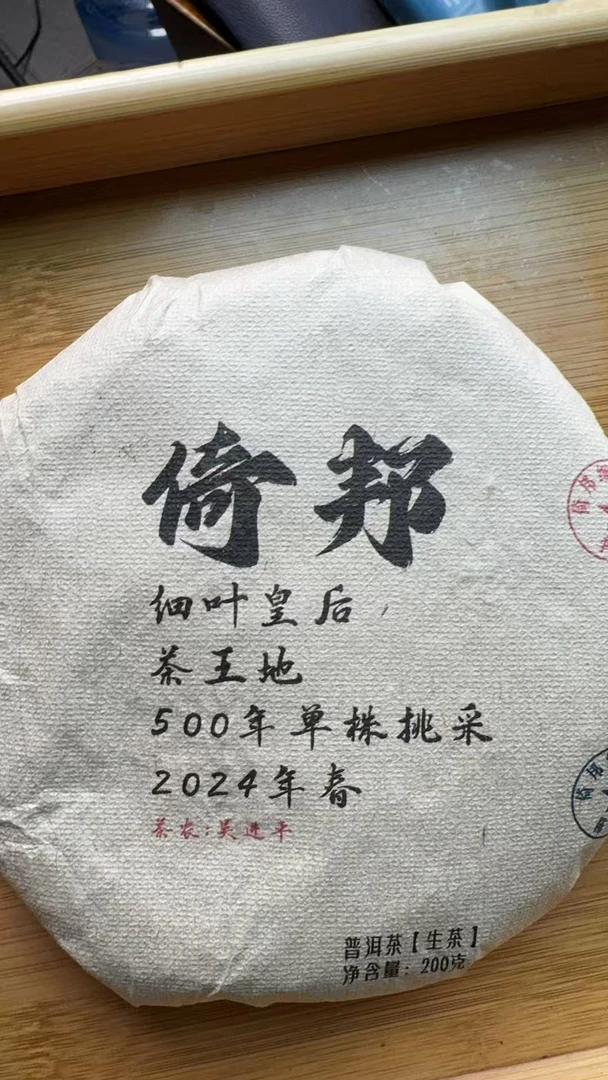 倚邦
细叶皇后
茶王地
500年单株挑采
2024年春
茶农:吴进平
普洱茶【生茶】
净含量: 200克